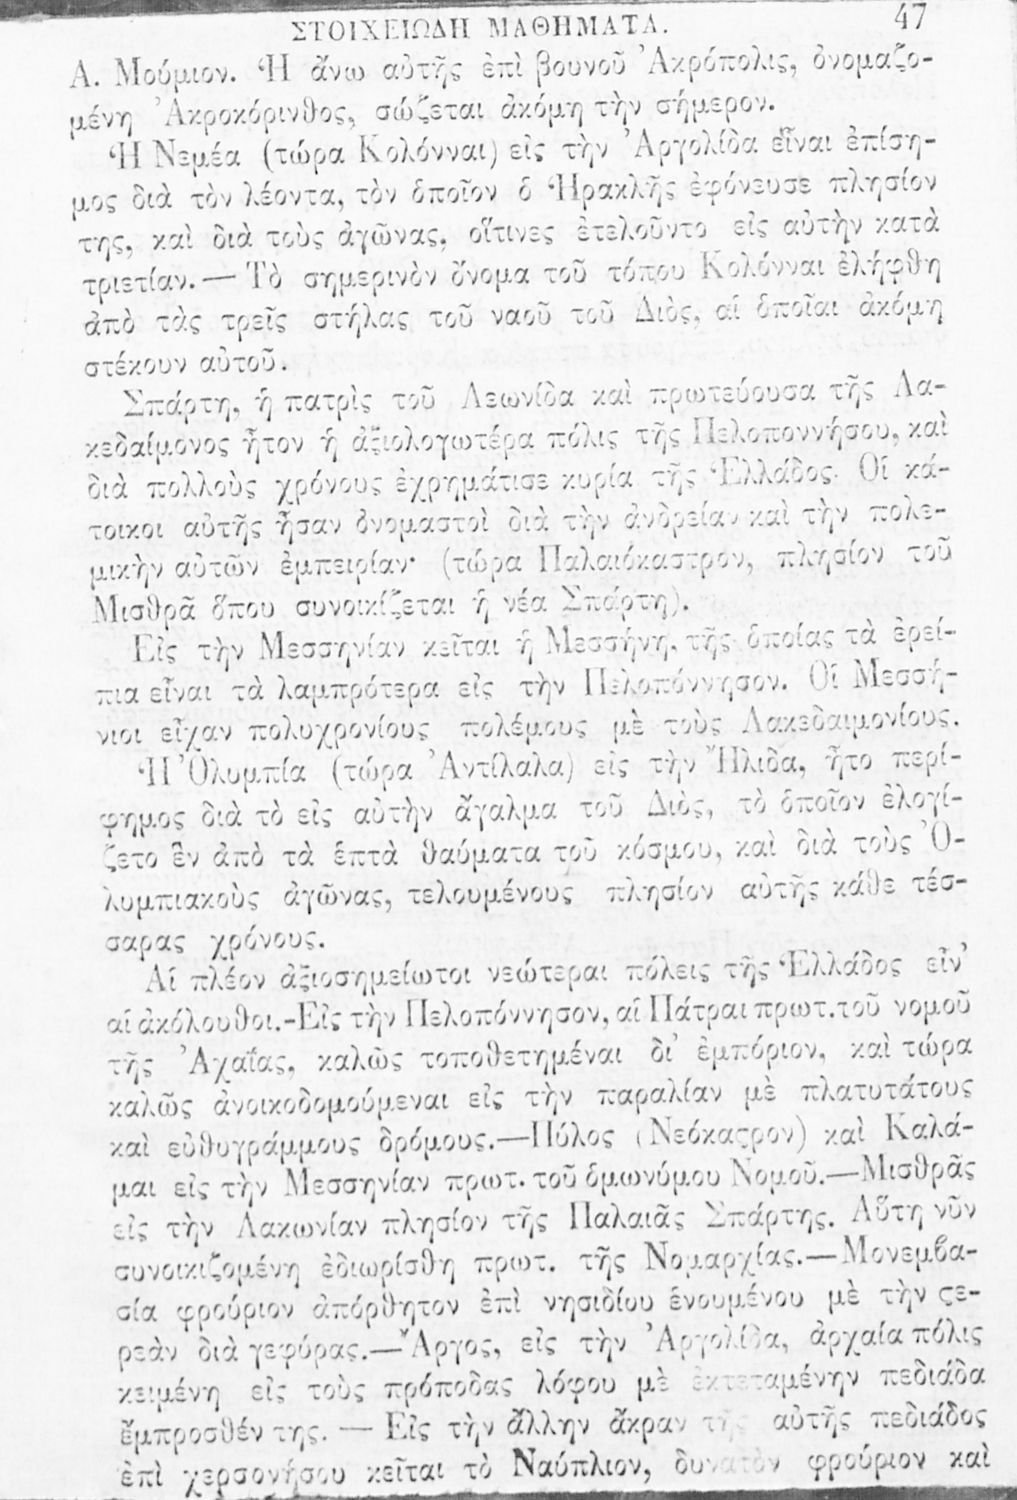 ΣΤΟΙΧΕΙΩΔΗ ΜΑΘΗΜΑΤΑ. 47
Α. Μούμιον. Ἡ ἄνω αὐτῆς ἐπὶ βουνοῦ Ἀκρόπολις, ὀνομαζο-
μένη Ἀκροκόρινθος, σώζεται ἀκόμη τὴν σήμερον.
Ἡ Νεμέα (τώρα Κολόνναι) εἰς τὴν Ἀργολίδα εἶναι ἐπίση-
μος διὰ τὸν λέοντα, τὸν ὁποῖον ὁ Ἡρακλῆς ἐφόνευσε πλησίον
της, καὶ διὰ τοὺς ἀγῶνας, οἵτινες ἐτελοῦντο εἰς αὐτὴν κατὰ
τριετίαν.— Τὸ σημερινὸν ὄνομα τοῦ τόπου Κολόνναι ἐλήφθη
ἀπὸ τὰς τρεῖς στήλας τοῦ ναοῦ τοῦ Διὸς, αἱ ὁποῖαι ἀκόμη
στέκουν αὐτοῦ.
Σπάρτη, ἡ πατρὶς τοῦ Λεωνίδα καὶ πρωτεύουσα τῆς Λα-
κεδαίμονος ἦτον ἡ ἀξιολογωτέρα πόλις τῆς Πελοποννήσου, καὶ
διὰ πολλοὺς χρόνους ἐχρημάτισε κυρία τῆς Ἑλλάδος. Οἱ κά-
τοικοι αὐτῆς ἦσαν ὀνομαστοὶ διὰ τὴν ἀνδρείαν καὶ τὴν πολε-
μικὴν αὐτῶν ἐμπειρίαν· (τώρα Παλαιόκαστρον, πλησίον τοῦ
Μισθρᾶ ὅπου συνοικίζεται ἡ νέα Σπάρτη).
Εἰς τὴν Μεσσηνίαν κεῖται ἡ Μεσσήνη, τῆς ὁποίας τὰ ἐρεί-
πια εἶναι τὰ λαμπρότερα εἰς τὴν Πελοπόννησον. Οἱ Μεσσή-
νιοι εἶχαν πολυχρονίους πολέμους μὲ τοὺς Λακεδαιμονίους.
Ἡ Ὀλυμπία (τώρα Ἀντίλαλα) εἰς τὴν Ἤλιδα, ἦτο περί-
φημος διὰ τὸ εἰς αὐτὴν ἄγαλμα τοῦ Διὸς, τὸ ὁποῖον ἐλογί-
ζετο ἓν ἀπὸ τὰ ἑπτὰ θαύματα τοῦ κόσμου, καὶ διὰ τοὺς Ὀ-
λυμπιακοὺς ἀγῶνας, τελουμένους πλησίον αὐτῆς κάθε τέσ-
σαρας χρόνους.
Αἱ πλέον ἀξιοσημείωτοι νεώτεραι πόλεις τῆς Ἑλλάδος εἶν᾽
αἱ ἀκόλουθοι.-Εἰς τὴν Πελοπόννησον, αἱ Πάτραι πρωτ. τοῦ νομοῦ
τῆς Ἀχαΐας, καλῶς τοποθετημέναι δι᾽ ἐμπόριον, καὶ τώρα
καλῶς ἀνοικοδομούμεναι εἰς τὴν παραλίαν μὲ πλατυτάτους
καὶ εὐθυγράμμους δρόμους.—Πύλος (Νεόκαςρον) καὶ Καλά-
μαι εἰς τὴν Μεσσηνίαν πρωτ. τοῦ ὁμωνύμου Νομοῦ.—Μισθρᾶς
εἰς τὴν Λακωνίαν πλησίον τῆς Παλαιᾶς Σπάρτης. Αὕτη νῦν
συνοικιζομένη ἐδιωρίσθη πρωτ. τῆς Νομαρχίας.—Μονεμβα-
σία φρούριον ἀπόρθητον ἐπὶ νησιδίου ἑνουμένου μὲ τὴν ςε-
ρεὰν διὰ γεφύρας.—Ἄργος, εἰς τὴν Ἀργολίδα, ἀρχαία πόλις
κειμένη εἰς τοὺς πρόποδας λόφου μὲ ἐκτεταμένην πεδιάδα
ἔμπροσθέν της. — Εἰς τὴν ἄλλην ἄκραν τῆς αὐτῆς πεδιάδος
ἐπὶ χερσονήσου κεῖται τὸ Ναύπλιον, δυνατὸν φρούριον καὶ